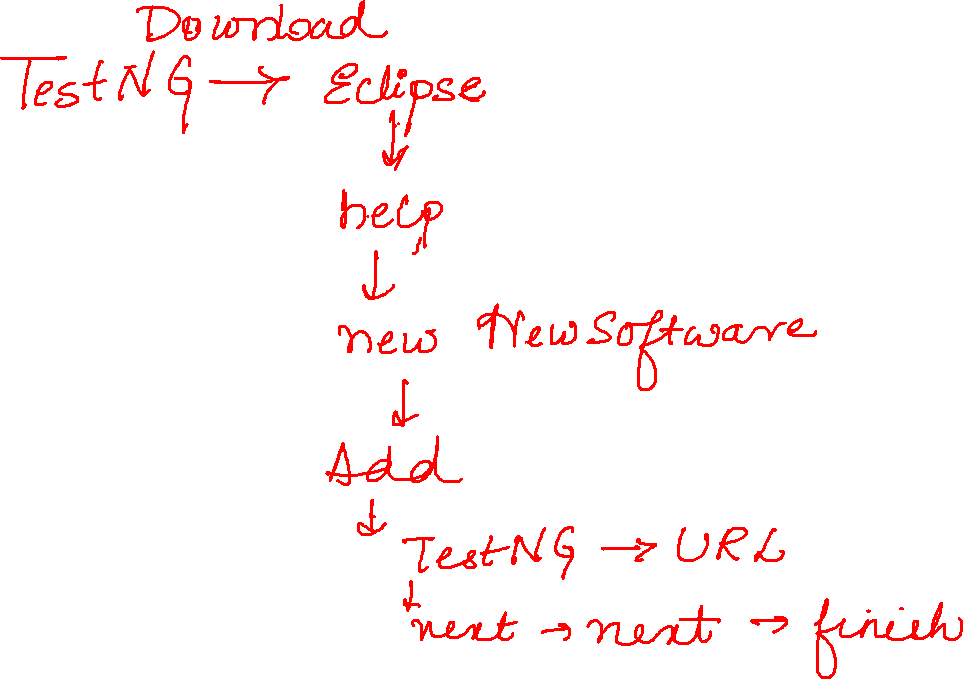 Download
TestNG → Eclipse
↓
help
↓
new New Software
↓
Add
↓
TestNG → URL
↓
next → next → finish